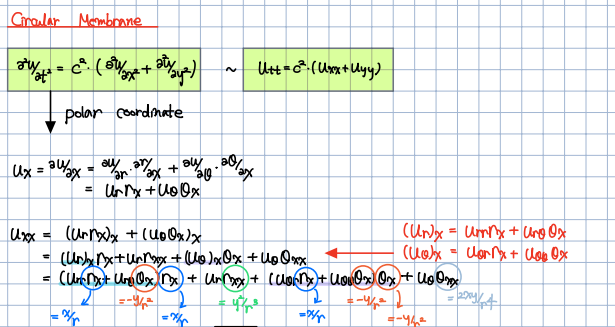 Circular Membrane
∂²u/∂t² = c²·(∂²u/∂x² + ∂²u/∂y²) ~ Utt = c²·(Uxx+Uyy)
polar coordinate
Ux = ∂u/∂x = ∂u/∂r · ∂r/∂x + ∂u/∂θ · ∂θ/∂x
= Ur rx + Uθ θx
Uxx = (Ur rx)x + (Uθ θx)x
(Ur)x = Urr rx + Urθ θx
= (Ur)x rx + Ur rxx + (Uθ)x θx + Uθ θxx
(Uθ)x = Uθr rx + Uθθ θx
= (Urr rx + Urθ θx) rx + Ur rxx + (Uθr rx + Uθθ θx) θx + Uθ θxx
= x/r
= -y/r²
= x/r
= y²/r³
= x/r
= -y/r²
= -y/r²
= 2xy/r⁴